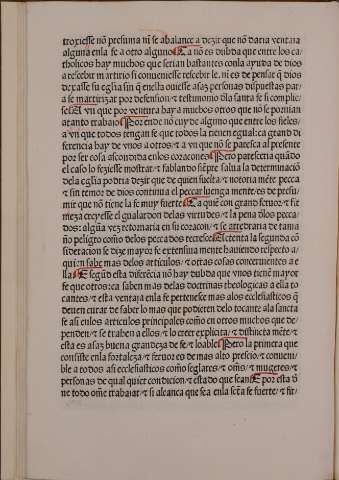 troxiesse nō presuma nī se abalance a dezir que nō daria ventaia
alguna enla fe a otro alguno Ca nō es dubda que entre los ca
tholicos hay muchos que serian bastantes conla ayuda de dios
a rescebir martirio si conueniesse rescebir le. ni es de pensar q̄ dios
dexasse su eglīa sin q̄ enella ouiesse asaz personas dispuestas par
a se martirizar por defension ⁊ testimonio dla santa fe si complie
sse A vn que por ventura hay a muchos otros que no se pornian
atanto trabaio Por ende nō cuy de algūo que entre los fieles
a vn que todos tengan fe que todos la tienen egual: ca grand di
ferencia hay de vnos a otros ⁊ a vn que nō se paresca al presente
por ser cosa ascondida enlos coraçones Pero paresceria quādo
el caso lo feziesse mostrar ⁊ fablando siēpre salua la determinaciō
dela eglīa podria dezir que de quien suelta ⁊ notoria mēte pecca
⁊ sin temor de dios continua el peccar luenga mente es de presu
mir que nō tiene la fe muy fuerte Ca quiē con grand feruor ⁊ fir
meza creyesse el gualardon delas virtudes ⁊ la pena dlos pecca
dos: algūa vez tornaria en su coraçon ⁊ se arredraria de tama
ño peligro como delos peccados recrece E tenta la segunda cō
sideracion se dize mayor fe extensiua mente hauiendo respecto a
quiē sabe mas delos articulos ⁊ otras cosas concernientes a e
lla E segūd esta diferēcia nō hay dubda que vnos tienē mayor
fe que otros: ca saben mas delas doctrinas theologicas a ella to
cantes ⁊ esta ventaia enla fe pertenesce mas alos eclesiasticos q̄
deuen curar de saber lo mas que podieren delo tocante ala sancta
fe asi enlos articulos principales como en otros muchos que de
penden ⁊ se trahen a ellos ⁊ lo creer explicita ⁊ distincta mēte ⁊
esta es asaz buena grandeza de fe ⁊ loable Pero la primera que
consiste enla fortaleza ⁊ feruor es de mas alto prescio ⁊ conueni
ble a todos asi eclesiasticos como seglares ⁊ om̄s ⁊ mugeres ⁊
personas de qual quier condicion ⁊ estado que sean E por esta d̄
ue todo om̄e trabaiar ⁊ si alcança que enla sctā fe fuerte ⁊ fir/